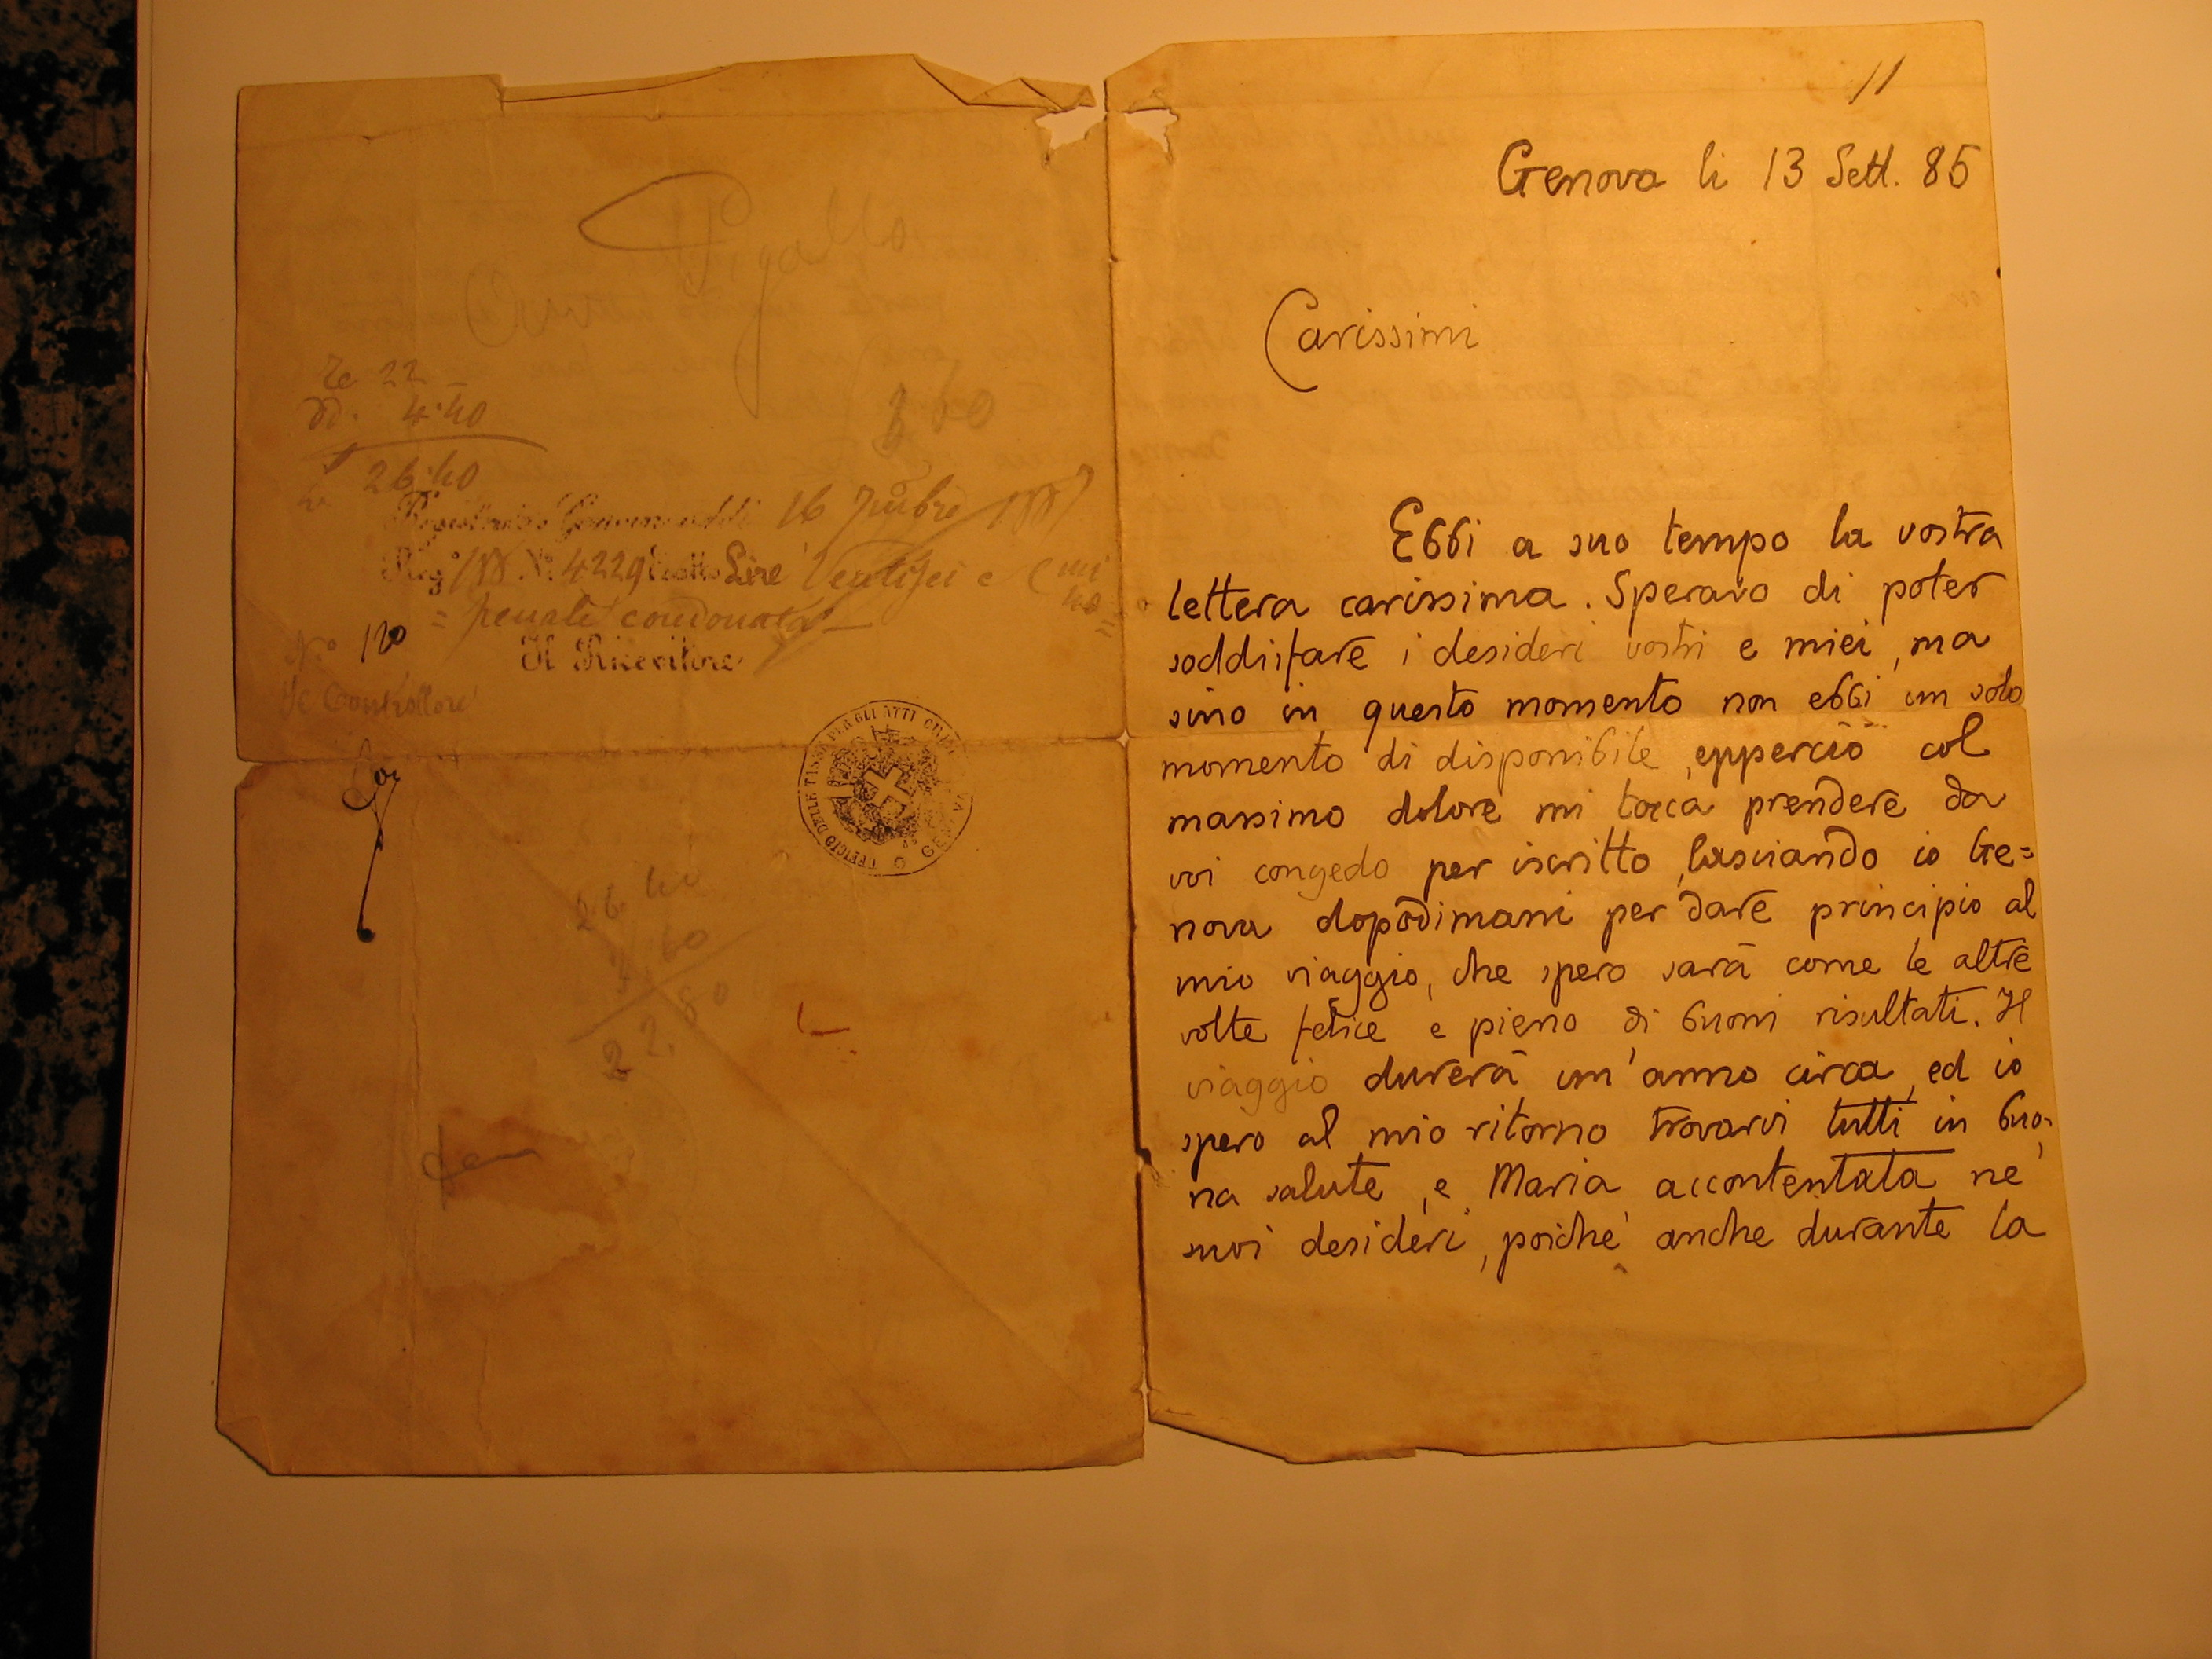 Pigallo
360
Te 22 —
Dd. 4.40
26.40
16
Reg° 188 N.° 4229 Lire Ventisei e Cmi
40
= penale condonata —
N° 120
Il Ricevitore
Il Controllore
UFFICIO DELLE TASSE PER GLI ATTI CIVILI GENOVA
26 40
3.60
22.80
11
Genova li 13 Sett. 85
Carissimi
Ebbi a suo tempo la vostra
lettera carissima. Speravo di poter
soddisfare i desideri vostri e miei, ma
sino in questo momento non ebbi un solo
momento di disponibile, epperciò col
massimo dolore mi tocca prendere da
voi congedo per iscritto, lasciando io Ge=
nova dopodimani per dare principio al
mio viaggio, che spero sarà come le altre
volte felice e pieno di buoni risultati. Il
viaggio durerà un'anno circa, ed io
spero al mio ritorno trovarvi tutti in buo-
na salute, e Maria accontentata ne'
suoi desideri, poichè anche durante la